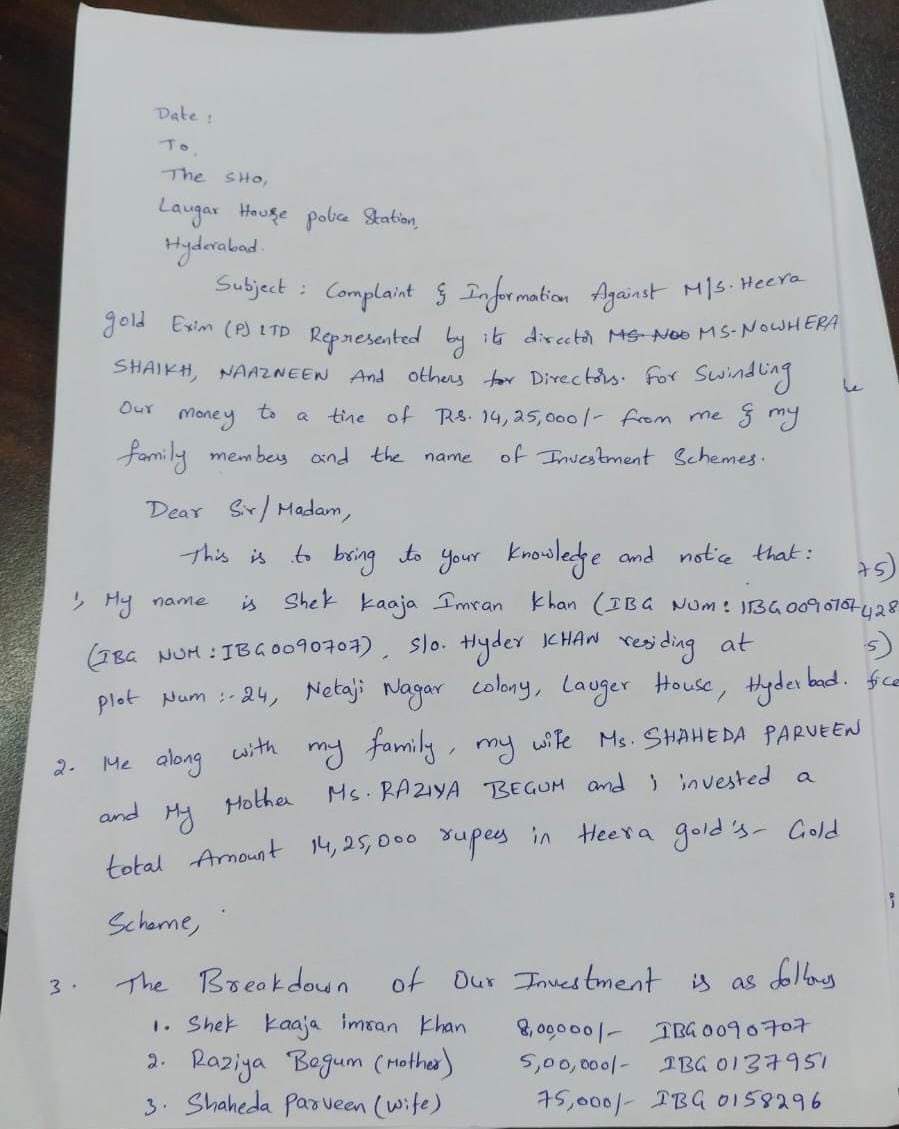 Date :
To,
The SHO,
Laugar House police Station,
Hyderabad.
Subject : Complaint & Information Against M/s. Heera
gold Exim (P) LTD Represented by its director MS NOO MS-NOWHERA
SHAIKH, NAAZNEEN And others for Directors. For Swindling
Our money to a tine of RS. 14,25,000/- from me & my
family members and the name of Investment Schemes.
Dear Sir/Madam,
This is to bring to your knowledge and notice that :
1, My name is Shek Kaaja Imran Khan (IBG NUM : IBG0090707
(IBG NUM : IBG0090707), S/o. Hyder KHAN residing at
plot Num :- 24, Netaji Nagar colony, Lauger House, Hyderbad.
2. Me along with my family, my wife Ms. SHAHEDA PARVEEN
and My Mother Ms. RAZIYA BEGUM and i invested a
total Amount 14,25,000 rupees in Heera gold's- Gold
Scheme,
3. The Breakdown of Our Investment is as follows
1. Shek Kaaja imran Khan 8,00,000/- IBG0090707
2. Raziya Begum (Mother) 5,00,000/- IBG 0137951
3. Shaheda Parveen (wife) 75,000/- IBG 0158296
75)
428
5)
fice